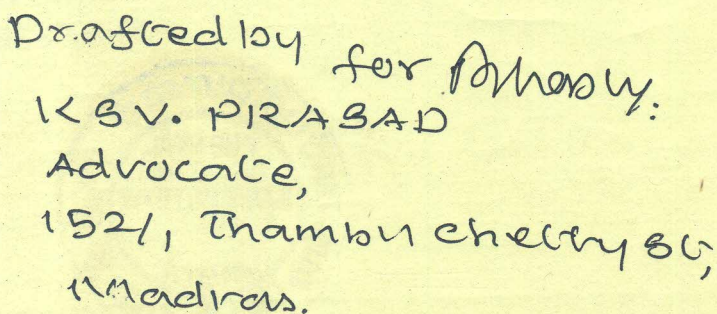 Drafted by for
K S V. PRASAD
Advocate,
152/, Thambu Chetty St,
Madras.